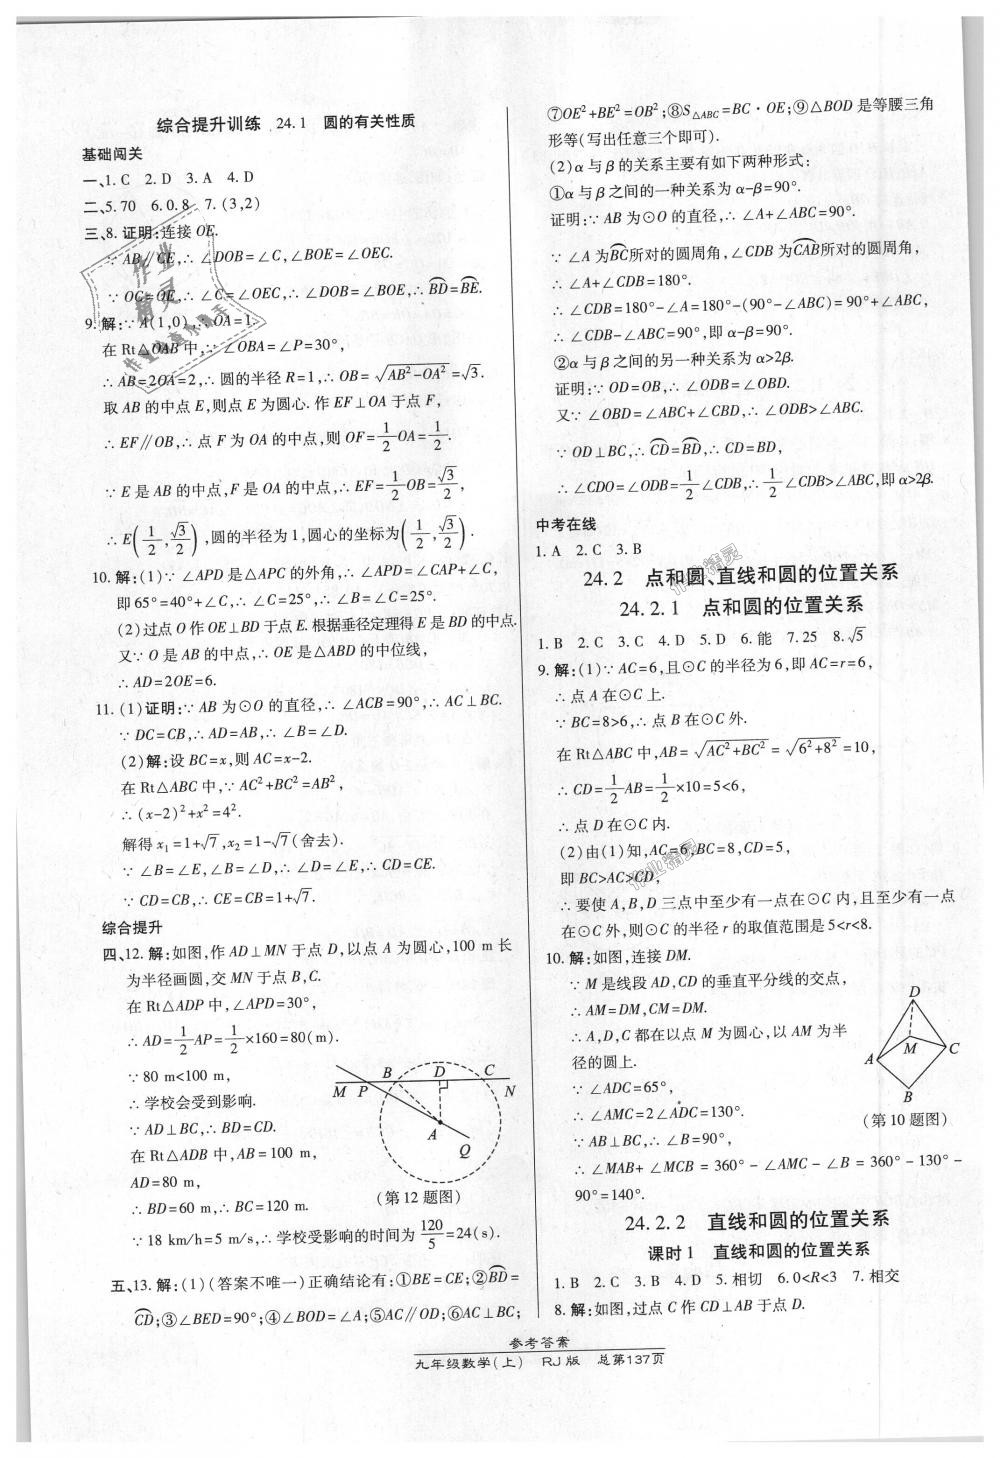 综合提升训练 24.1 圆的有关性质
基础闯关
一、1. C 2. D 3. A 4. D
二、5.70 6.0.8 7. (3,2)
三、8. 证明:连接 OE.
∵ AB∥CE,∴ ∠DOB=∠C,∠BOE=∠OEC.
∵ OC=OE,∴ ∠C=∠OEC,∴ ∠DOB=∠BOE,∴ B͡D=B͡E.
9. 解:∵ A(1,0),∴ OA=1.
在 Rt△OAB 中,∵ ∠OBA=∠P=30°,
∴ AB=2OA=2,∴ 圆的半径 R=1,∴ OB=√(AB²-OA²)=√3.
取 AB 的中点 E,则点 E 为圆心. 作 EF⊥OA 于点 F,
∴ EF∥OB,∴ 点 F 为 OA 的中点,则 OF=1/2OA=1/2.
∵ E 是 AB 的中点,F 是 OA 的中点,∴ EF=1/2OB=√3/2,
∴ E(1/2,√3/2),圆的半径为 1,圆心的坐标为(1/2,√3/2).
10. 解:(1)∵ ∠APD 是△APC 的外角,∴ ∠APD=∠CAP+∠C,
即 65°=40°+∠C,∴ ∠C=25°,∴ ∠B=∠C=25°.
(2)过点 O 作 OE⊥BD 于点 E. 根据垂径定理得 E 是 BD 的中点.
又∵ O 是 AB 的中点,∴ OE 是△ABD 的中位线,
∴ AD=2OE=6.
11. (1)证明:∵ AB 为⊙O 的直径,∴ ∠ACB=90°,∴ AC⊥BC.
∵ DC=CB,∴ AD=AB,∴ ∠B=∠D.
(2)解:设 BC=x,则 AC=x-2.
在 Rt△ABC 中,∵ AC²+BC²=AB²,
∴ (x-2)²+x²=4².
解得 x₁=1+√7,x₂=1-√7(舍去).
∵ ∠B=∠E,∠B=∠D,∴ ∠D=∠E,∴ CD=CE.
∵ CD=CB,∴ CE=CB=1+√7.
综合提升
四、12. 解:如图,作 AD⊥MN 于点 D,以点 A 为圆心,100 m 长
为半径画圆,交 MN 于点 B,C.
在 Rt△ADP 中,∠APD=30°,
∴ AD=1/2AP=1/2×160=80(m).
∵ 80 m<100 m,
∴ 学校会受到影响.
∵ AD⊥BC,∴ BD=CD.
在 Rt△ADB 中,AB=100 m,
AD=80 m,
∴ BD=60 m,∴ BC=120 m.
∵ 18 km/h=5 m/s,∴ 学校受影响的时间为120/5=24(s).
M P B D C N
A
Q
(第 12 题图)
五、13. 解:(1)(答案不唯一)正确结论有:①BE=CE;②B͡D=
C͡D;③∠BED=90°;④∠BOD=∠A;⑤AC∥OD;⑥AC⊥BC;
⑦OE²+BE²=OB²;⑧S△ABC=BC·OE;⑨△BOD 是等腰三角
形等(写出任意三个即可).
(2)α 与 β 的关系主要有如下两种形式:
①α 与 β 之间的一种关系为 α-β=90°.
证明:∵ AB 为⊙O 的直径,∴ ∠A+∠ABC=90°.
∵ ∠A 为B͡C所对的圆周角,∠CDB 为C͡AB所对的圆周角,
∴ ∠A+∠CDB=180°.
∴ ∠CDB=180°-∠A=180°-(90°-∠ABC)=90°+∠ABC,
∴ ∠CDB-∠ABC=90°,即 α-β=90°.
②α 与 β 之间的另一种关系为 α>2β.
证明:∵ OD=OB,∴ ∠ODB=∠OBD.
又∵ ∠OBD=∠ABC+∠CBD,∴ ∠ODB>∠ABC.
∵ OD⊥BC,∴ C͡D=B͡D,∴ CD=BD,
∴ ∠CDO=∠ODB=1/2∠CDB,∴ 1/2∠CDB>∠ABC,即 α>2β.
中考在线
1. A 2. C 3. B
24.2 点和圆、直线和圆的位置关系
24.2.1 点和圆的位置关系
1. B 2. C 3. C 4. D 5. D 6. 能 7. 25 8. √5
9. 解:(1)∵ AC=6,且⊙C 的半径为 6,即 AC=r=6,
∴ 点 A 在⊙C 上.
∵ BC=8>6,∴ 点 B 在⊙C 外.
在 Rt△ABC 中,AB=√(AC²+BC²)=√(6²+8²)=10,
∴ CD=1/2AB=1/2×10=5<6,
∴ 点 D 在⊙C 内.
(2)由(1)知,AC=6,BC=8,CD=5,
即 BC>AC>CD,
∴ 要使 A,B,D 三点中至少有一点在⊙C 内,且至少有一点
在⊙C 外,则⊙C 的半径 r 的取值范围是 5<r<8.
10. 解:如图,连接 DM.
∵ M 是线段 AD,CD 的垂直平分线的交点,
∴ AM=DM,CM=DM.
∴ A,D,C 都在以点 M 为圆心,以 AM 为半
径的圆上.
∵ ∠ADC=65°,
∴ ∠AMC=2∠ADC=130°.
∵ AB⊥BC,∴ ∠B=90°,
∴ ∠MAB+∠MCB=360°-∠AMC-∠B=360°-130°-
90°=140°.
D
A M C
B
(第 10 题图)
24.2.2 直线和圆的位置关系
课时 1 直线和圆的位置关系
1. B 2. C 3. B 4. D 5. 相切 6. 0<R<3 7. 相交
8. 解:如图,过点 C 作 CD⊥AB 于点 D.
参考答案
九年级数学(上) RJ版 总第137页
作业精灵
作业精灵
作业精灵